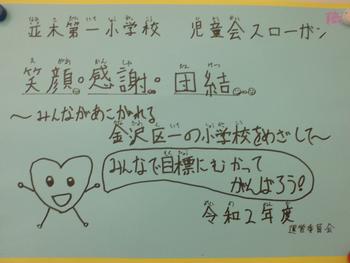 並木第一小学校 児童会スローガン
笑顔。感謝。団結。
～みんながあこがれる
金沢区一の小学校をめざして～
みんなで目標にむかって
がんばろう!
令和2年度
運営委員会